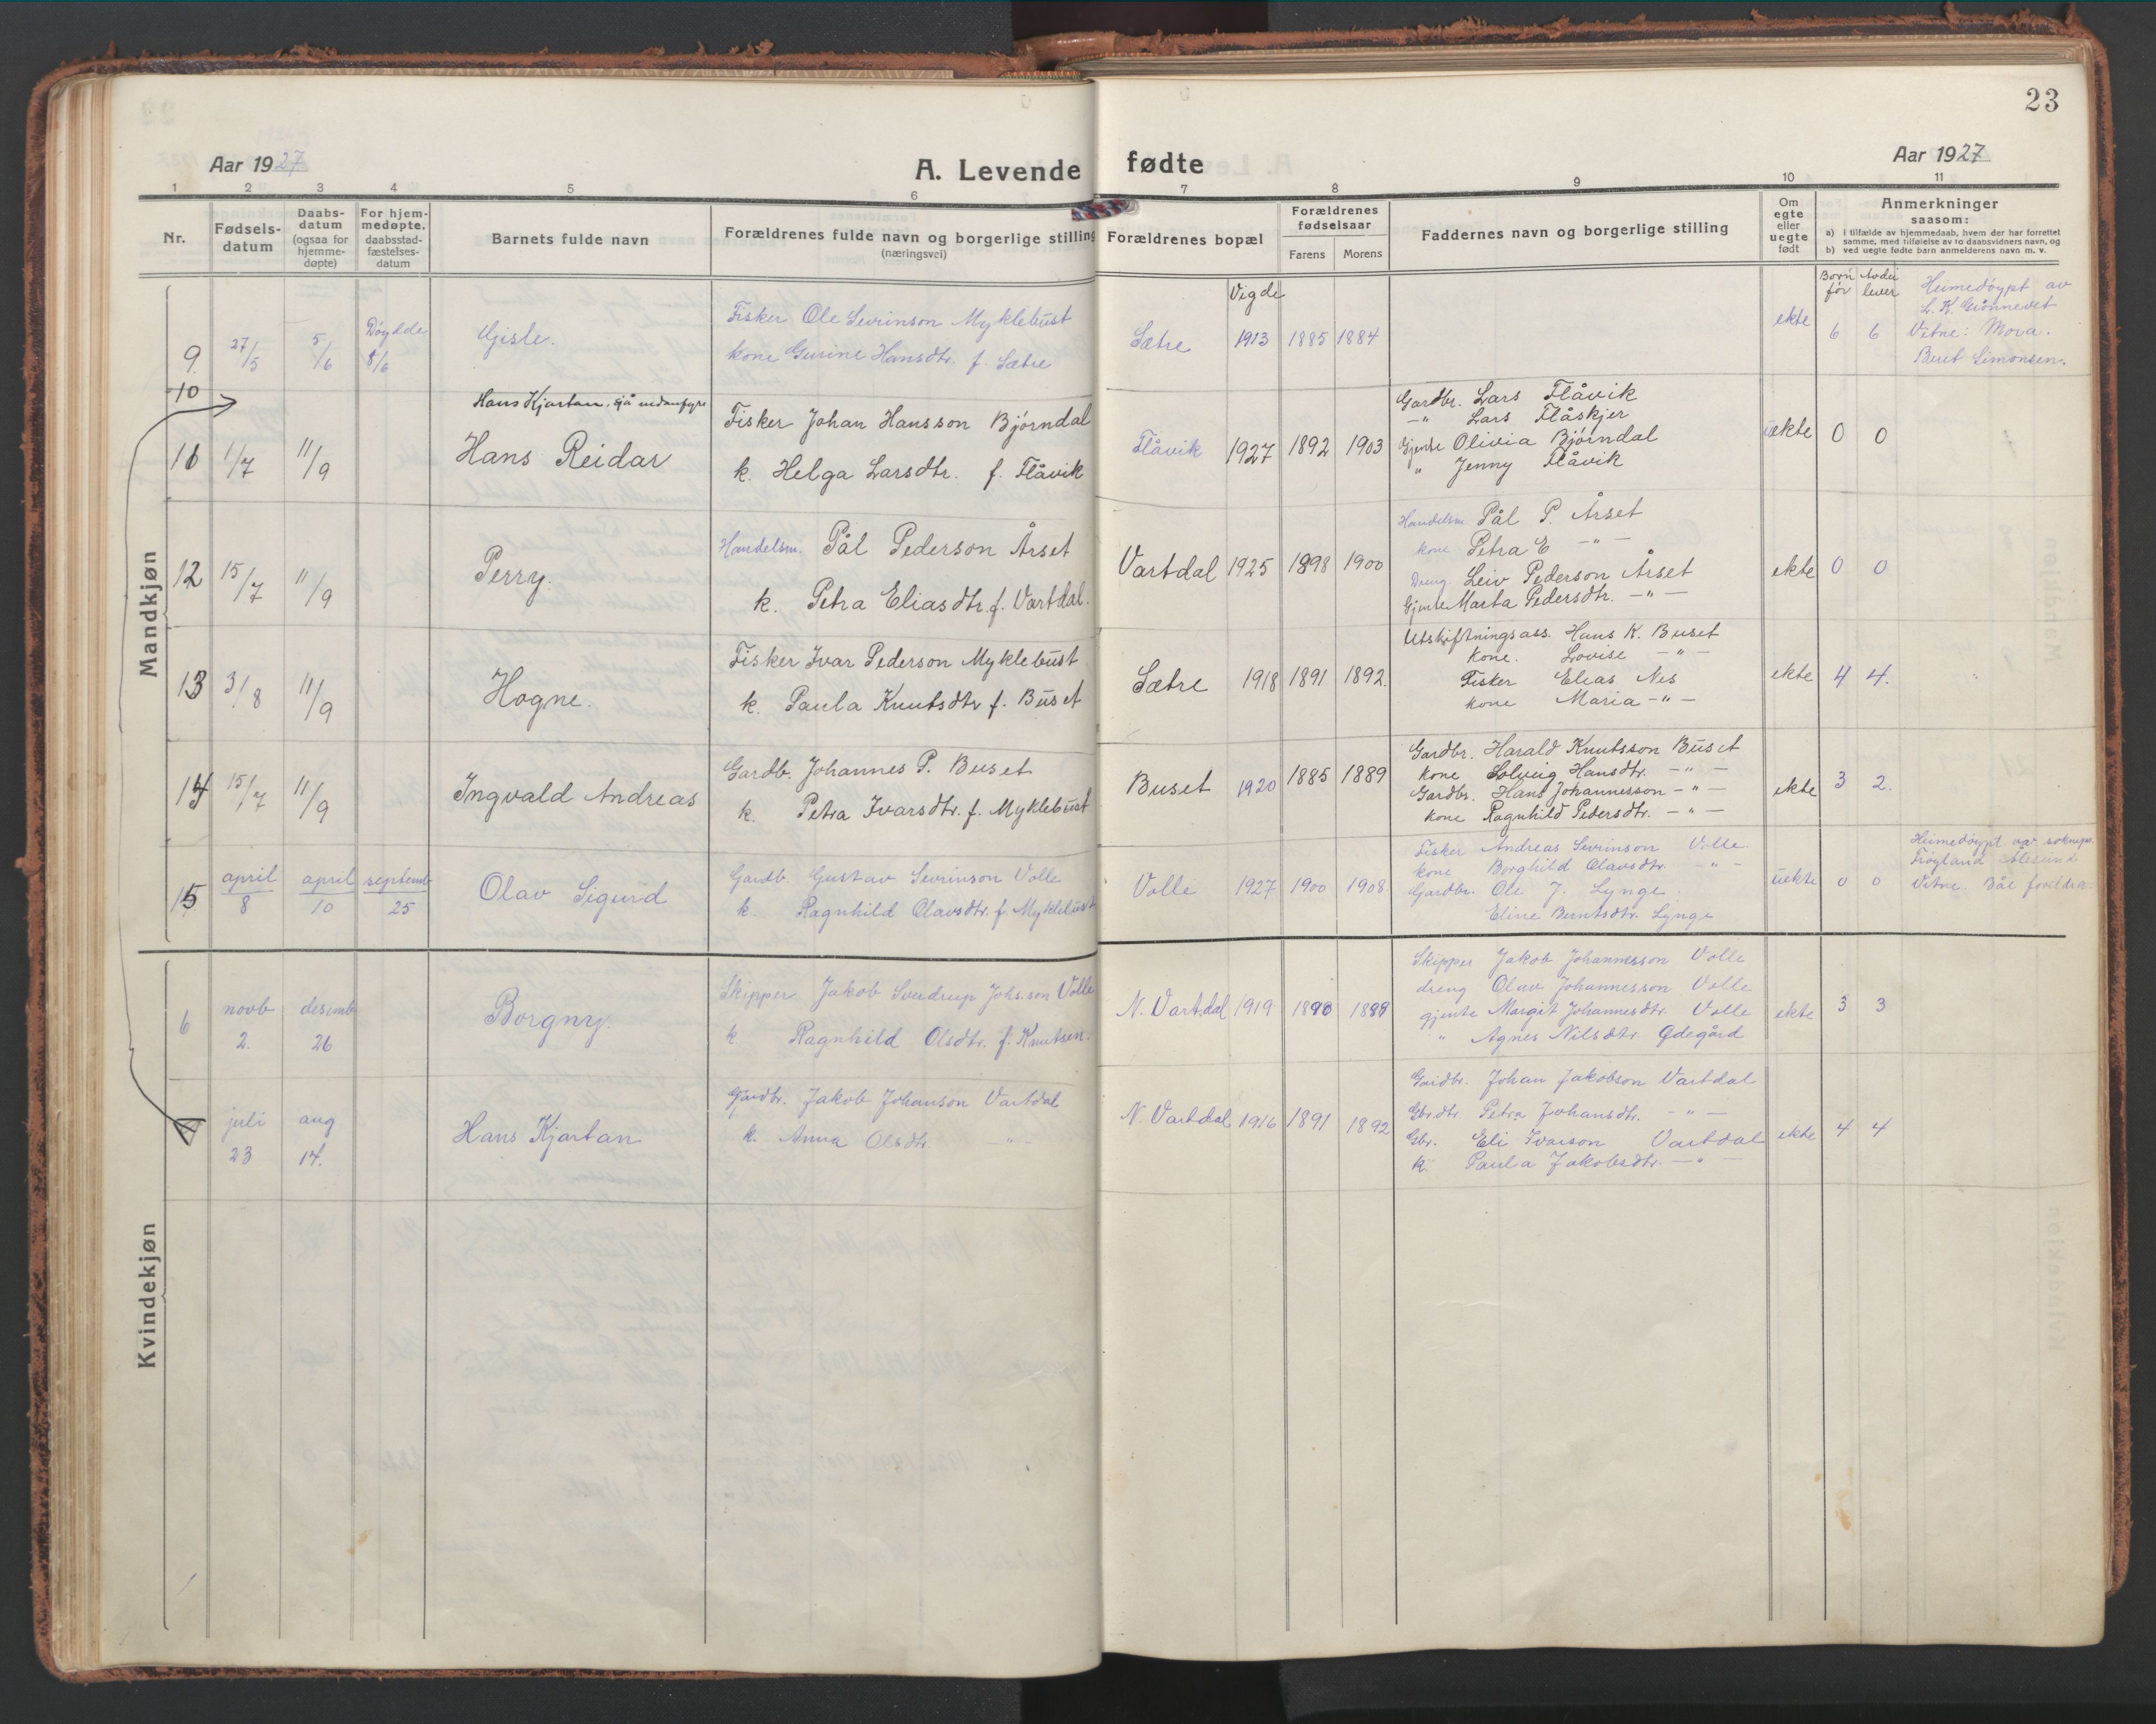 23
Aar 1927
A. Levende fødte
Aar 1927
1 2 3 4 5 6 7 8 9 10 11
Nr.
Fødsels-datum
Daabs-datum (ogsaa for hjemme-døpte)
For hjem-medøpte, daabsstad-fæstelses-datum
Barnets fulde navn
Forældrenes fulde navn og borgerlige stilling (næringsvei)
Forældrenes bopæl
Forældrenes fødselsaar
Farens Morens
Faddernes navn og borgerlige stilling
Om egte eller uegte født
Anmerkninger saasom:
a) i tilfælde av hjemmedaab, hvem der har forrettet samme, med tilføielse av to daabsvidners navn, og
b) ved uegte fødte barn anmelderens navn m. v.
Vigde
Born før
lever
Mandkjøn
9. 27/5 5/6 Døydde 8/6 Gisle.
Fisker Ole Sevrinson Myklebust
kone Gurine Hansdtr. f. Sætre
Sætre 1913 1885 1884
ekte 6 6
Heimedøypt av
L. K. Grønnevet
Vitne: Mora.
Beret Simonsen.
10 Hans Kjartan, sjå nedanfyre
11 1/7 11/9 Hans Reidar
Fisker Johan Hansson Bjørndal
k. Helga Larsdtr. f. Flåvik
Flåvik 1927 1892 1903
Gardbr. Lars Flåvik
-"- Lars Flåskjer
Gjente Olivia Bjørndal
" Jenny Flåvik
uekte 0 0
12 15/7 11/9 Perry.
Handelsm. Pål Pederson Årset
k. Petra Eliasdtr. f. Vartdal.
Vartdal 1925 1898 1900
Handelsm. Pål P. Årset
kone Petra E -"-
Dreng Leiv Pederson Årset
Gjente Marta Pedersdtr. -"-
ekte 0 0
13 3/8 11/9 Hogne.
Fisker Ivar Pederson Myklebust
k. Paula Knutsdtr f. Buset
Sætre 1918 1891 1892.
Utskiftningsass. Hans K. Buset
Kone. Lovise -"-
Fisker Elias Nes
kone Maria -"-
ekte 4 4.
14 15/7 11/9 Ingvald Andreas
Gardb. Johannes P. Buset
k. Petra Ivarsdtr. f. Myklebust
Buset 1920 1885 1889
Gardbr. Harald Knutsson Buset
kone Solveig Hansdtr. -"-
Gardbr. Hans Johannesson -"-
kone Ragnhild Pedersdtr. -"-
ekte 3 2.
15 april 8 april 10 septemb 25 Olav Sigurd
Gardb. Gustav Sevrinson Volle
k. Ragnhild Olavsdtr. f. Myklebust
Volle 1927 1900 1908.
Fisker Andreas Sevrinson Volle.
kone Borghild Olavsdtr. -"-
Gardbr. Ole J. Lynge.
Eline Berntsdtr. Lynge
uekte 0 0
Heimedøypt av soknepr.
Frøgland Ålesund
Vitne Båe foreldra
Kvindekjøn
6 novb 2. desemb 26 Borgny.
Skipper Jakob Sverdrup Johs.son Volle
k Ragnhild Olsdtr. f. Knutsen.
N. Vartdal 1919 1890 1899
Skipper Jakob Johannesson Volle
dreng Olav Johannesson Volle
gjente Margit Johannesdtr. Volle
" Agnes Nilsdtr. Ødegård
ekte 3 3
juli 23 aug 14. Hans Kjartan
Gardbr. Jakob Johanson Vartdal
k. Anna Olsdtr. -"-
N. Vartdal 1916 1891 1892
Gardbr. Johan Jakobson Vartdal
Gbr.dtr. Petra Johansdtr. -"-
Gbr. Eli Ivarson Vartdal
k. Paula Jakobsdtr. -"-
ekte 4 4